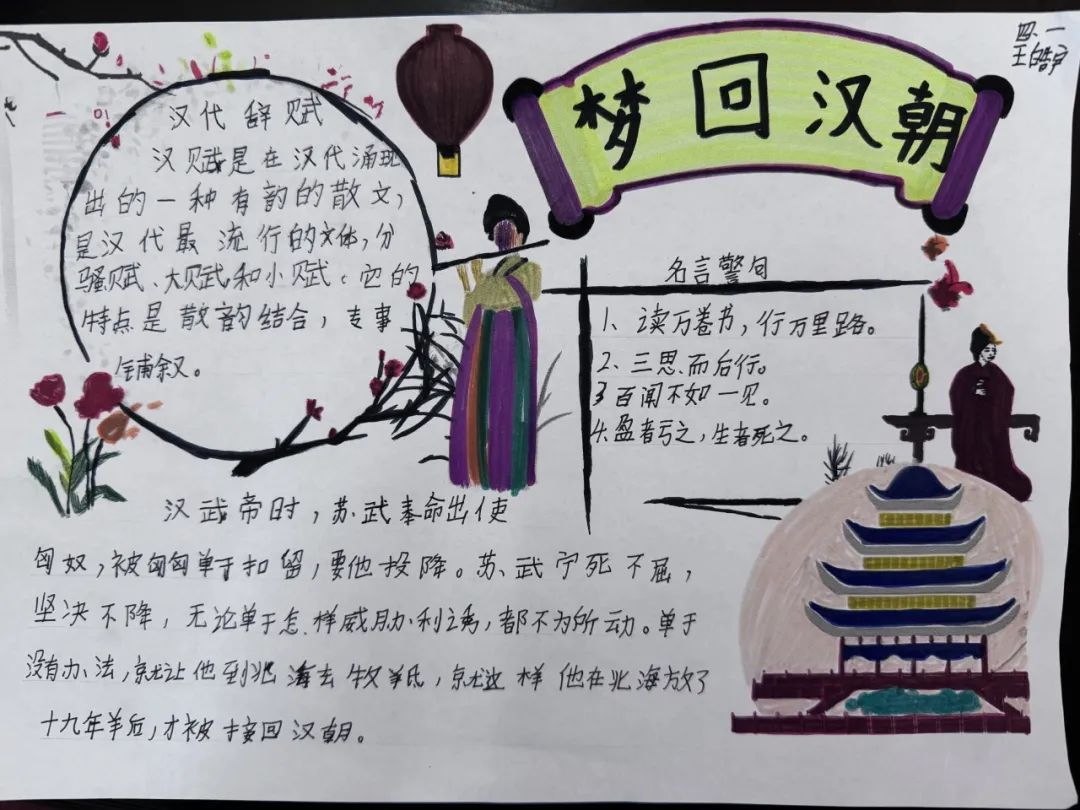 四、一
王皓宇
梦回汉朝
汉代辞赋
汉赋是在汉代涌现
出的一种有韵的散文，
是汉代最流行的文体，分
骚赋、大赋和小赋。它的
特点是散韵结合，专事
铺叙。
名言警句
1、读万卷书，行万里路。
2、三思而后行。
3 百闻不如一见。
4.盈者亏之，生者死之。
汉武帝时，苏武奉命出使
匈奴，被匈匈单于扣留，要他投降。苏武宁死不屈，
坚决不降，无论单于怎样威胁利诱，都不为所动。单于
没有办法，就让他到北海去牧羊，就这样他在北海放了
十九年羊后，才被接回汉朝。